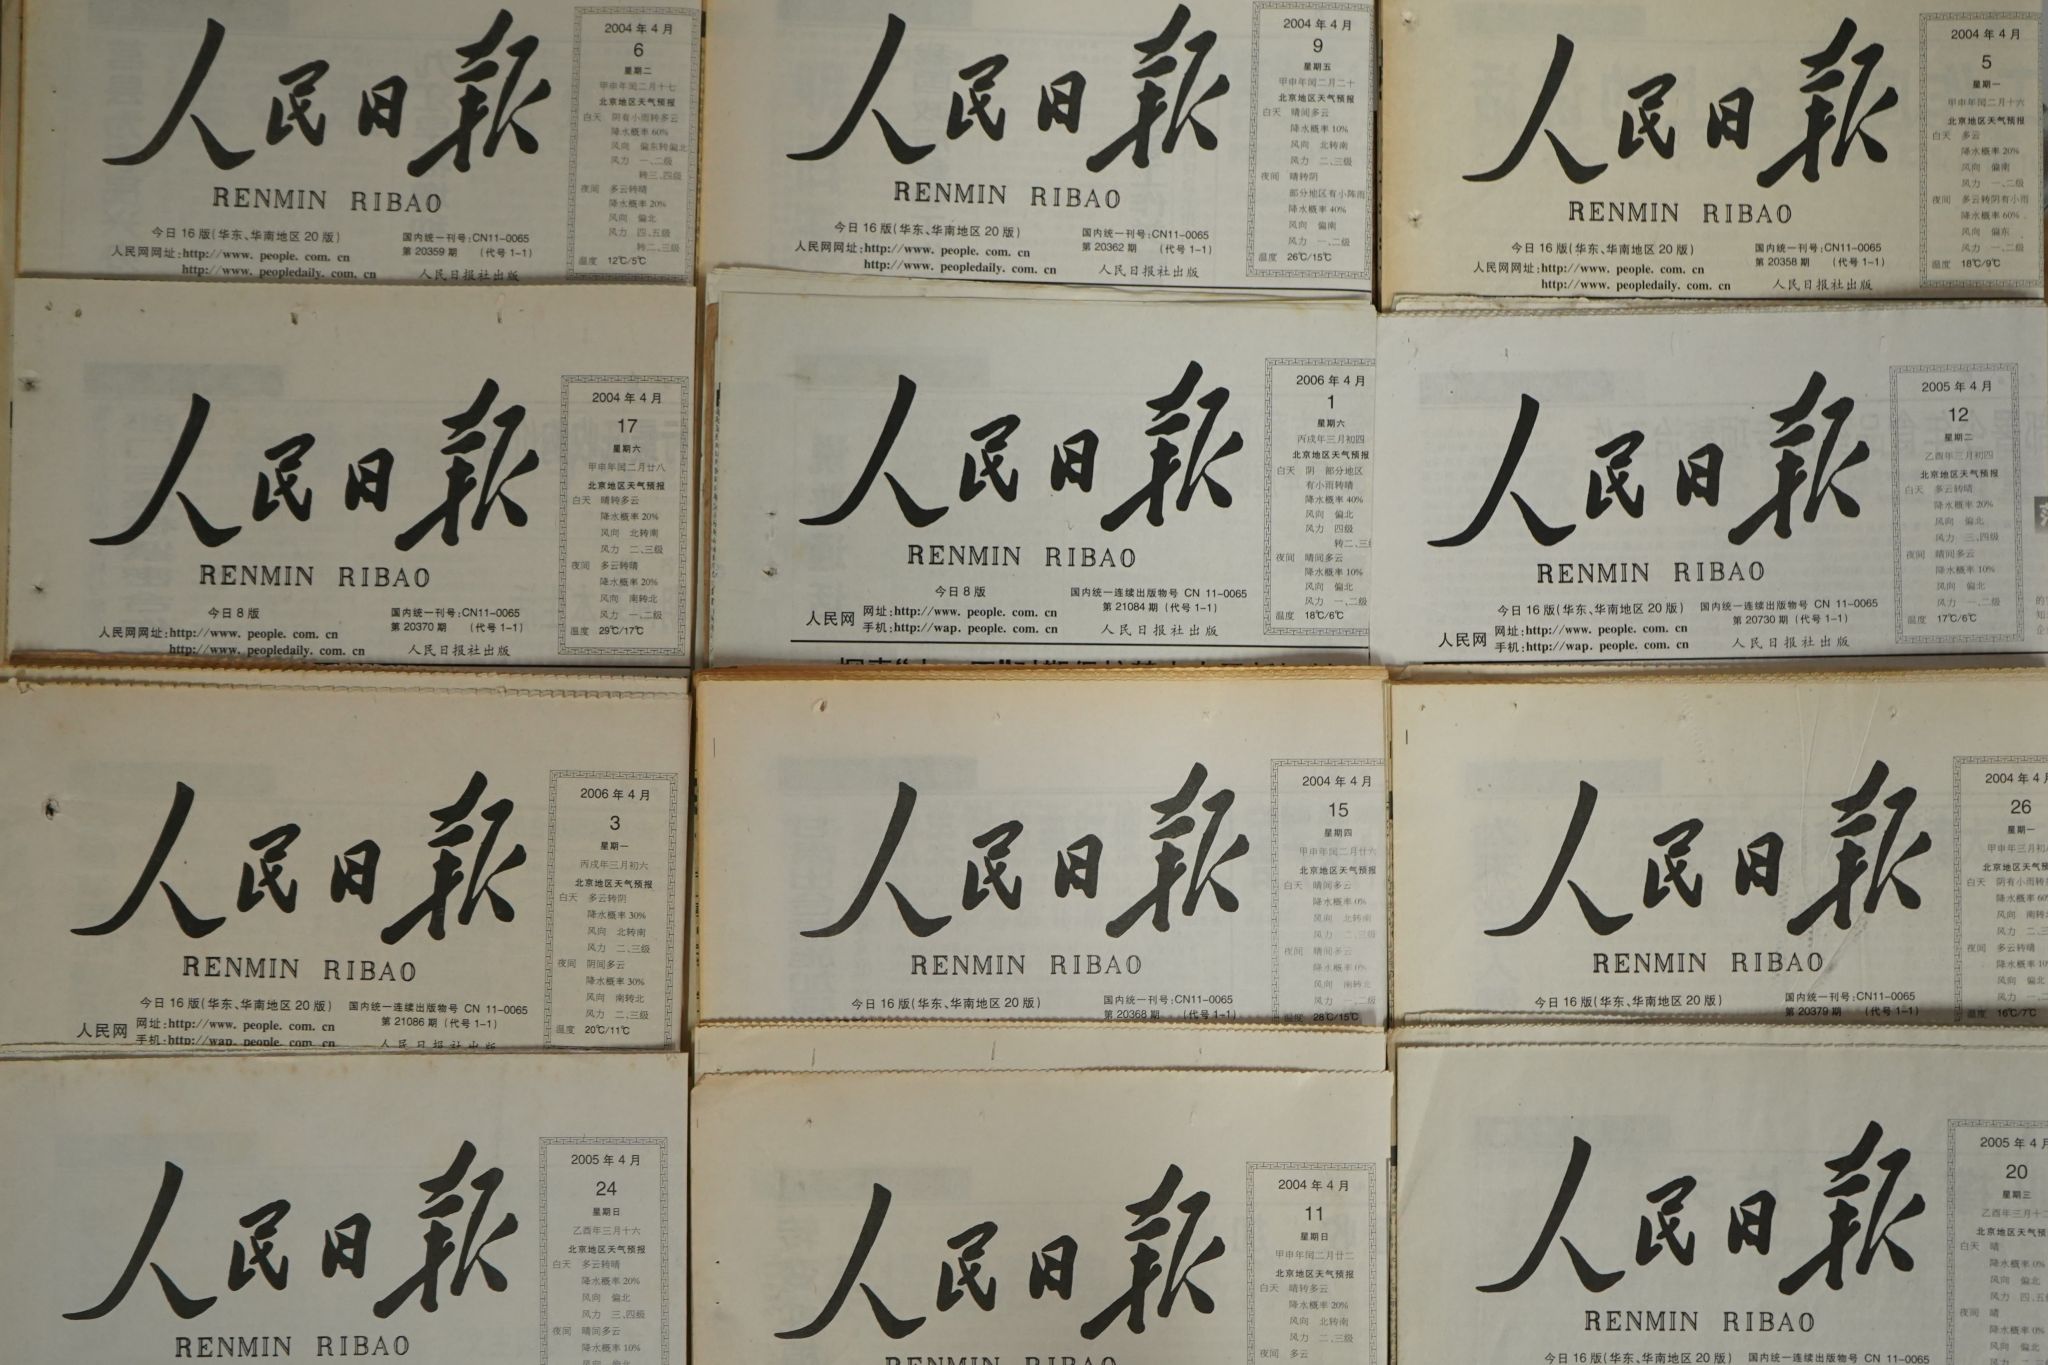 人民日报
RENMIN RIBAO
今日16版(华东、华南地区20版)
国内统一刊号:CN11-0065
第20359期 (代号1-1)
人民网网址:http://www. people. com. cn
http://www. peopledaily. com. cn
人民日报社出版
2004年4月
6
星期二
甲申年闰二月十七
北京地区天气预报
白天 阴有小雨转多云
降水概率60%
风向 偏东转偏北
风力 一、二级
转三、四级
夜间 多云转晴
降水概率20%
风向 偏北
风力 四、五级
转二、三级
温度 12℃/5℃
人民日报
RENMIN RIBAO
今日16版(华东、华南地区20版)
国内统一刊号:CN11-0065
第20362期 (代号1-1)
人民网网址:http://www. people. com. cn
http://www. peopledaily. com. cn
人民日报社出版
2004年4月
9
星期五
甲申年闰二月二十
北京地区天气预报
白天 晴间多云
降水概率10%
风向 北转南
风力 二、三级
夜间 晴转阴
部分地区有小阵雨
降水概率40%
风向 偏南
风力 一、二级
温度 26℃/15℃
人民日报
RENMIN RIBAO
今日16版(华东、华南地区20版)
国内统一刊号:CN11-0065
第20358期 (代号1-1)
人民网网址:http://www. people. com. cn
http://www. peopledaily. com. cn
人民日报社出版
2004年4月
5
星期一
甲申年闰二月十六
北京地区天气预报
白天 多云
降水概率20%
风向 偏南
风力 一、二级
夜间 多云转阴有小雨
降水概率60%
风向 偏东
风力 一、二级
温度 18℃/9℃
人民日报
RENMIN RIBAO
今日8版
国内统一刊号:CN11-0065
第20370期 (代号1-1)
人民网网址:http://www. people. com. cn
http://www. peopledaily. com. cn
人民日报社出版
2004年4月
17
星期六
甲申年闰二月廿八
北京地区天气预报
白天 晴转多云
降水概率20%
风向 北转南
风力 二、三级
夜间 多云转晴
降水概率20%
风向 南转北
风力 一、二级
温度 29℃/17℃
人民日报
RENMIN RIBAO
今日8版
国内统一连续出版物号 CN 11-0065
第21084期 (代号1-1)
人民网 网址:http://www. people. com. cn
手机:http://wap. people. com. cn
人民日报社出版
2006年4月
1
星期六
丙戌年三月初四
北京地区天气预报
白天 阴 部分地区
有小雨转晴
降水概率40%
风向 偏北
风力 四级
转二、三
夜间 晴间多云
降水概率10%
风向 偏北
风力 一、二级
温度 18℃/6℃
人民日报
RENMIN RIBAO
今日16版(华东、华南地区20版)
国内统一连续出版物号 CN 11-0065
第20730期 (代号1-1)
人民网 网址:http://www. people. com. cn
手机:http://wap. people. com. cn
人民日报社出版
2005年4月
12
星期二
乙酉年三月初四
北京地区天气预报
白天 多云转晴
降水概率20%
风向 偏北
风力 三、四级
夜间 晴间多云
降水概率10%
风向 偏北
风力 一、二级
温度 17℃/6℃
人民日报
RENMIN RIBAO
今日16版(华东、华南地区20版)
国内统一连续出版物号 CN 11-0065
第21086期 (代号1-1)
人民网 网址:http://www. people. com. cn
手机:http://wap. people. com. cn
人民日报社出版
2006年4月
3
星期一
丙戌年三月初六
北京地区天气预报
白天 多云转阴
降水概率30%
风向 北转南
风力 二、三级
夜间 阴间多云
降水概率30%
风向 南转北
风力 二、三级
温度 20℃/11℃
人民日报
RENMIN RIBAO
今日16版(华东、华南地区20版)
国内统一刊号:CN11-0065
第20368期 (代号1-1)
2004年4月
15
星期四
甲申年闰二月廿六
北京地区天气预报
白天 晴间多云
降水概率0%
风向 北转南
风力 二、三级
夜间 晴间多云
降水概率0%
风向 南转北
风力 一、二级
温度 28℃/15℃
人民日报
RENMIN RIBAO
今日16版(华东、华南地区20版)
国内统一刊号:CN11-0065
第20379期 (代号1-1)
2004年4月
26
星期一
甲申年三月初
北京地区天气预报
白天 阴有小雨转
降水概率60
风向 南转
风力 二、三
夜间 多云转晴
降水概率10
风向 偏北
风力 一、二
温度 16℃/7℃
人民日报
RENMIN RIBAO
2005年4月
24
星期日
乙酉年三月十六
北京地区天气预报
白天 多云转晴
降水概率20%
风向 偏北
风力 三、四级
夜间 晴间多云
降水概率10%
风向 偏北
人民日报
RENMIN RIBAO
2004年4月
11
星期日
甲申年闰二月廿二
北京地区天气预报
白天 晴转多云
降水概率20%
风向 北转南
风力 二、三级
夜间 多云
人民日报
RENMIN RIBAO
今日16版(华东、华南地区20版)
国内统一连续出版物号 CN 11-0065
2005年4月
20
星期三
乙酉年三月十二
北京地区天气预
白天 晴
降水概率0%
风向 偏北
风力 四、五
夜间 晴
降水概率0%
风向 偏北